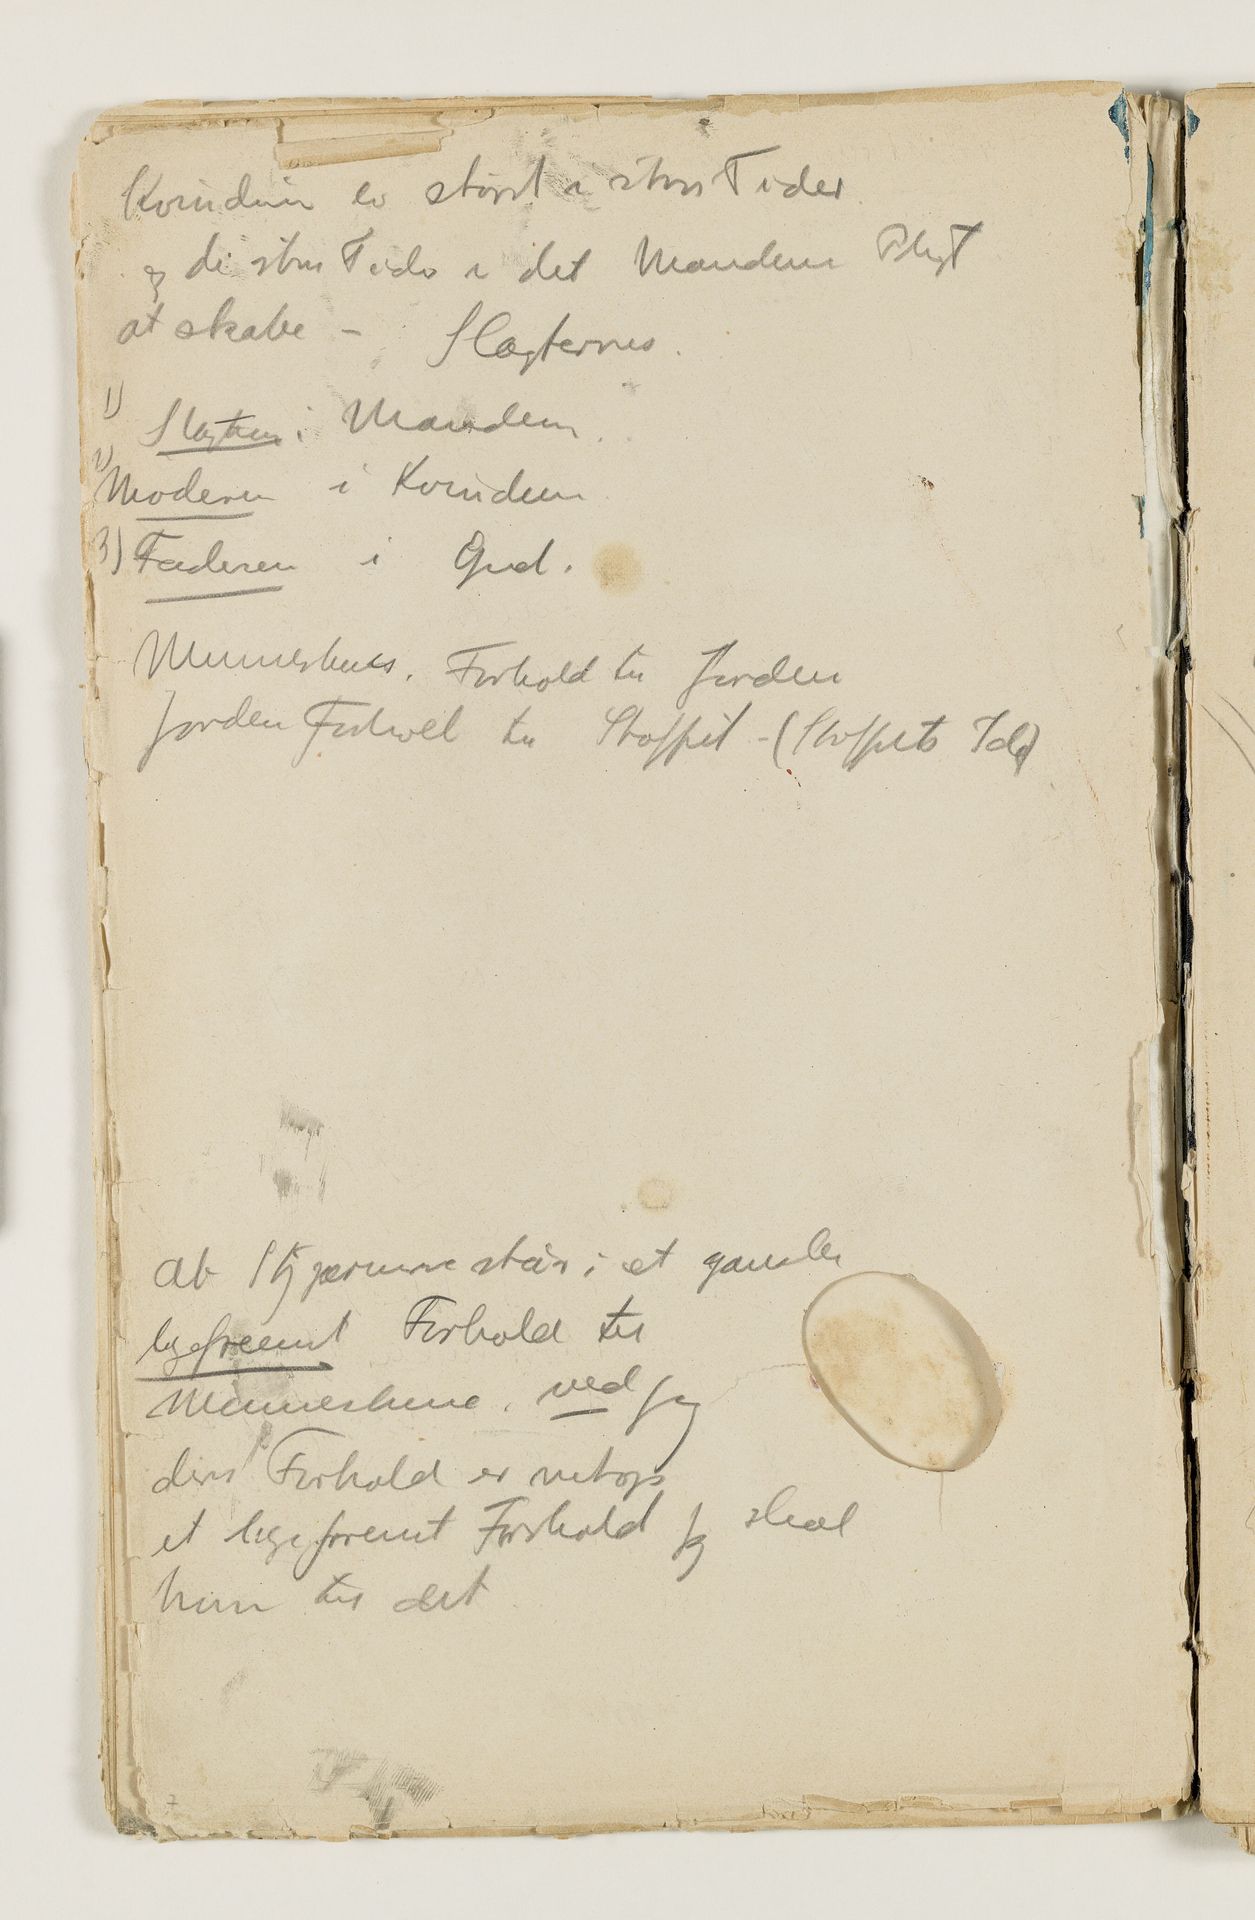 Kvinden er størst i store Tider
og de store Tider i det Mandens Pligt
at skabe – Slægternes.
1) Slægten i Manden.
2) Moderen i Kvinden
3) Faderen i Gud.
Menneskets. Forhold til Jorden
Jorden Forhold til Stoffet – (Stoffets Ide)
at Stjærnerne står i et ganske
ligefremt Forhold til
Menneskene. ved jeg
deres Forhold er netop
et ligefremt Forhold jeg skal
hen til det